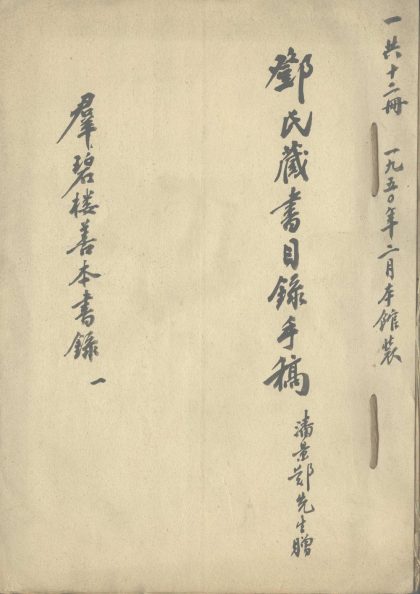 一共十二冊 一九五〇年二月本館裝
鄧氏藏書目錄手稿 潘景鄭先生贈
羣碧楼善本書錄 一